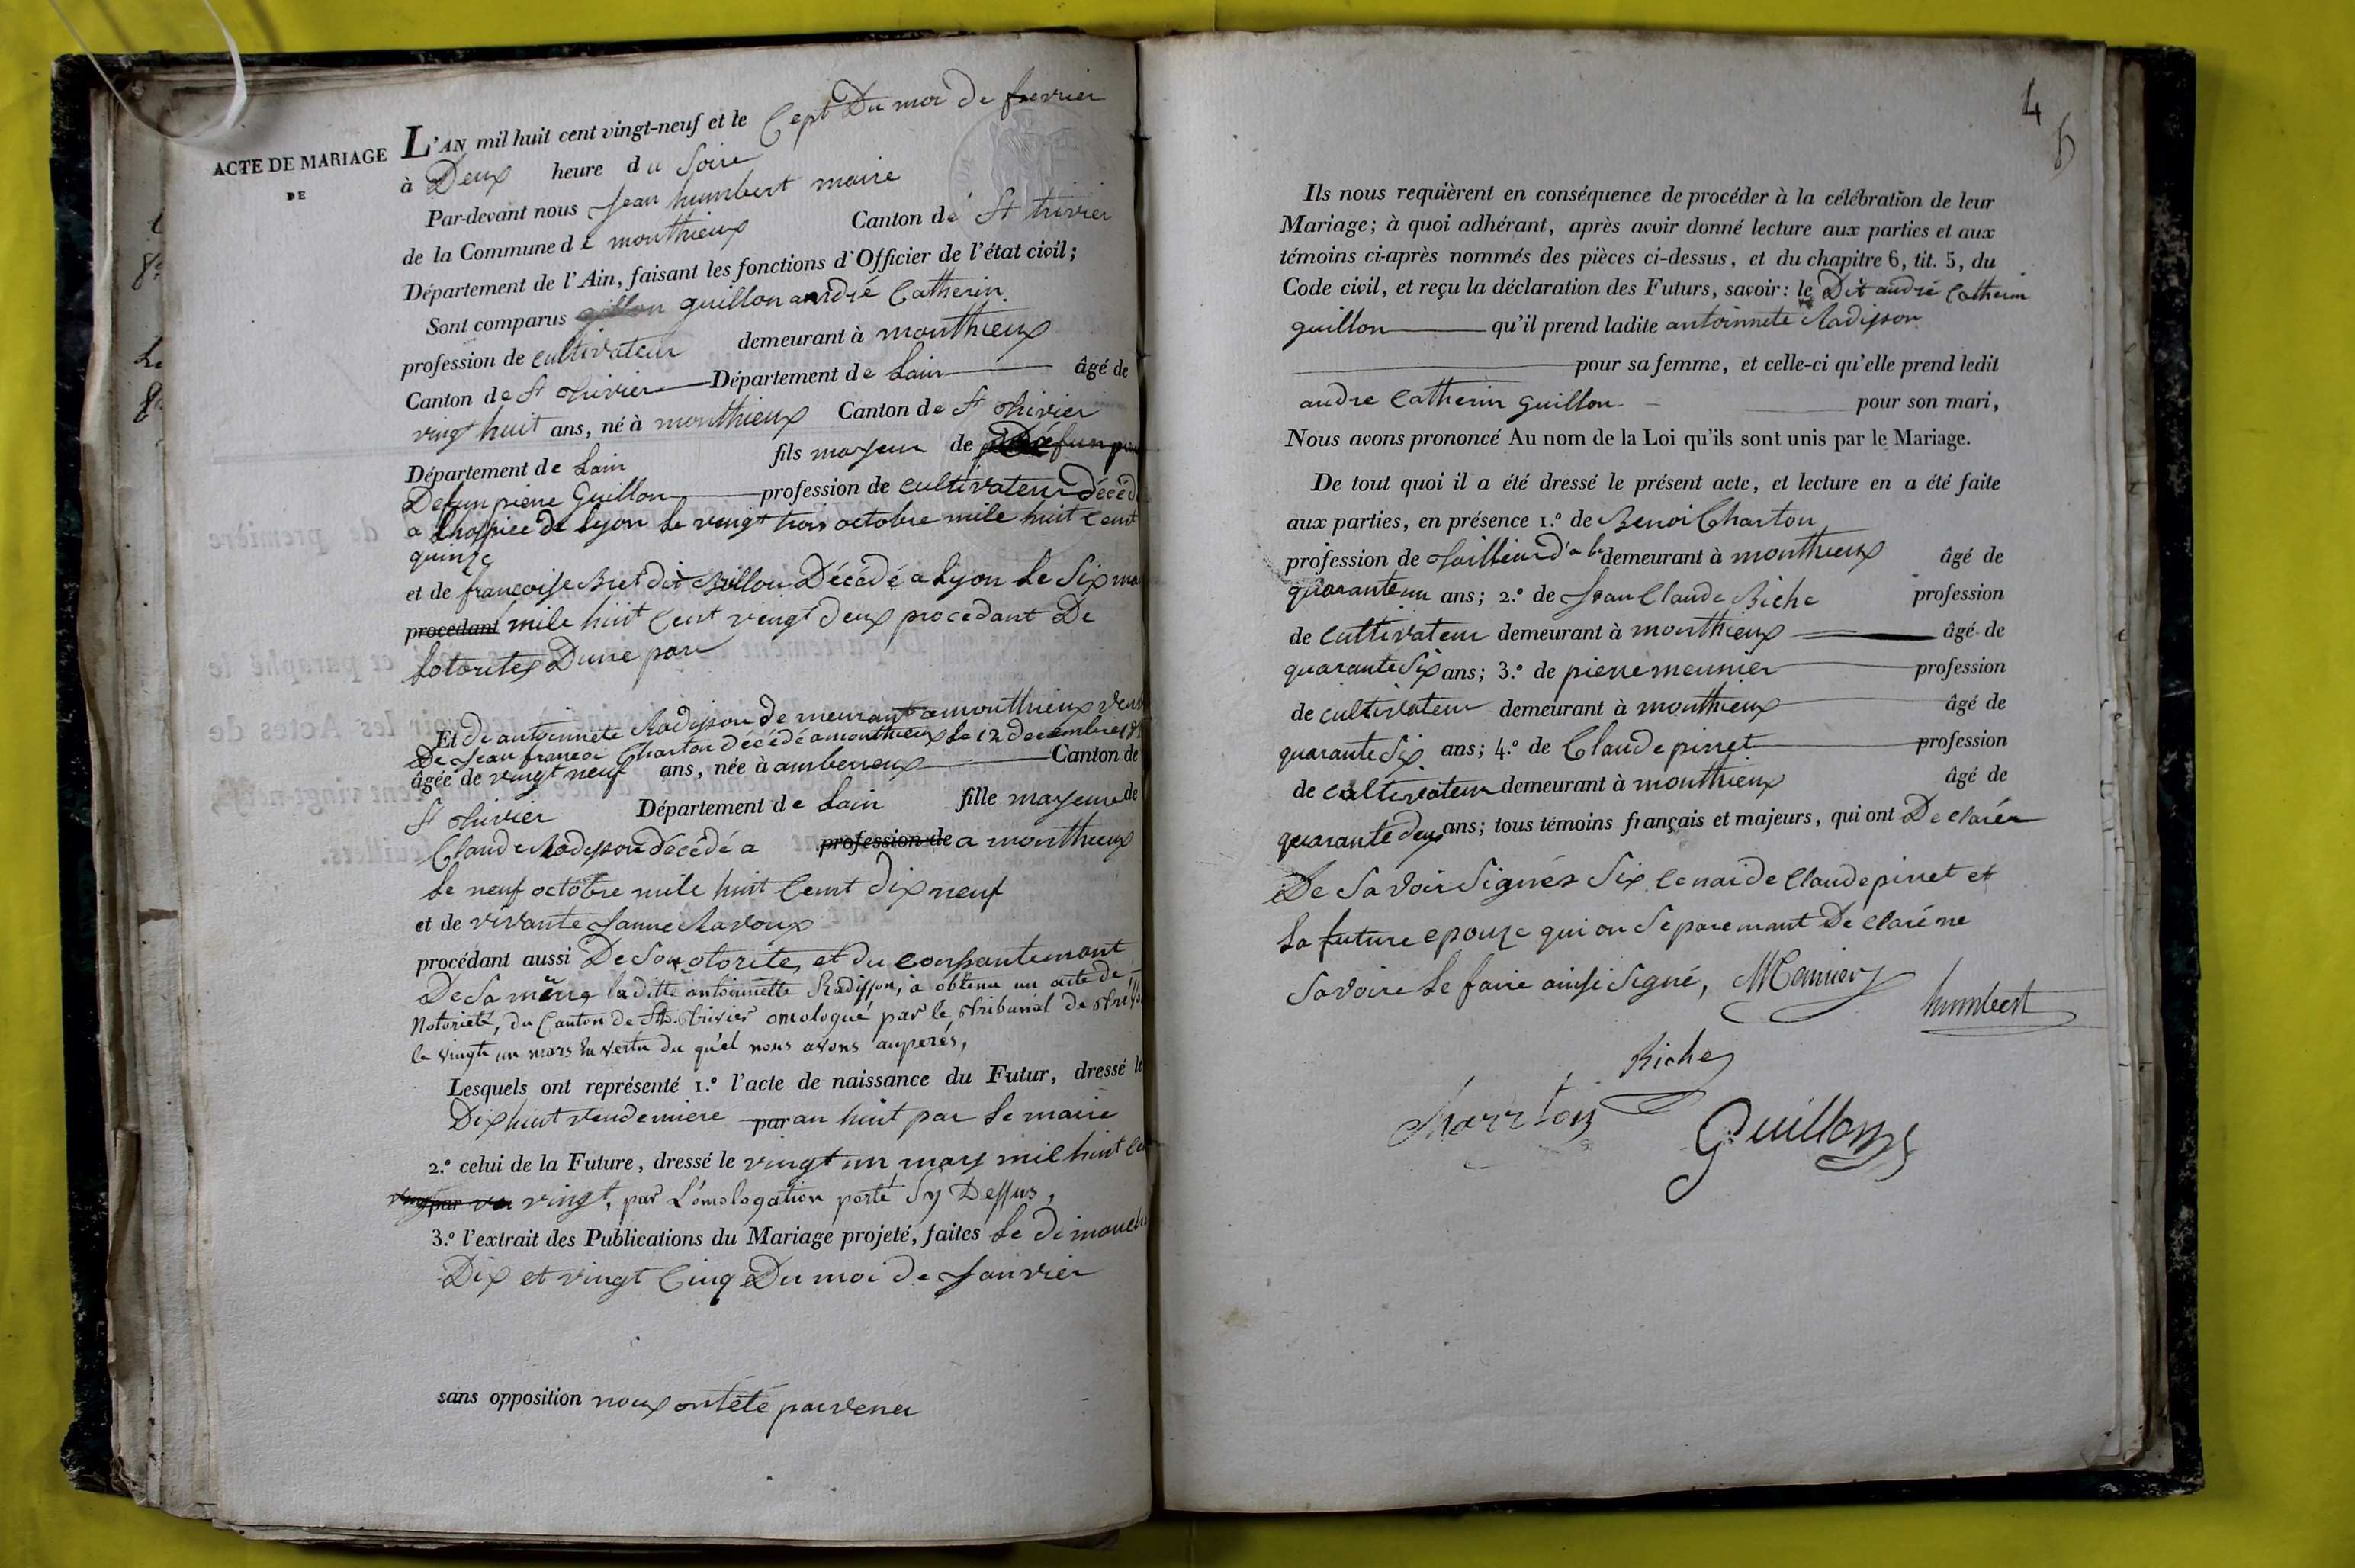 ACTE DE MARIAGE
DE
L'AN mil huit cent vingt-neuf et le Cept Du moi de fevrier
à Deux heure du Soire
Par-devant nous Jean humbert maire
de la Commune de monthieux Canton de St trivier
Département de l'Ain, faisant les fonctions d'Officier de l'état civil;
Sont comparus guillon andré Catherin
profession de cultivateur demeurant à monthieux
Canton de St trivier Département de Lain âgé de
vingt huit ans, né à monthieux Canton de St trivier
Département de Lain fils majeur de
Defun pierre Guillon profession de cultivateur décéd
a Lhospice de Lyon Le vingt trois octobre mile huit Cent
quinze
et de francoise Bret dit Billon Décédé a Lyon Le Six ma
procedant mile huit Cent vingt deux procedant De
Lotorites Dune par
Et de antoinnete Radisson demeurant a monthieux veuv
De Jean francoi Charton décédé a monthieux Le 12 decembre 18
âgée de vingt neuf ans, née à amberieux Canton de
St trivier Département de Lain fille majeure de
Claude Radisson decédé a profession de a monthieux
Le neuf octobre mile huit Cent Dix neuf
et de vivante Janne Ravoux
procédant aussi De Son otorites et du consantemant
De Sa mère la ditte antoinnette Radisson, a obtenu un acte de
Notorieté, du Canton de St Trivier omologué par le tribunal de
le vingt un mars En vertu du quel nous avons auperés,
Lesquels ont représenté 1.º l'acte de naissance du Futur, dressé le
Dix huit vendemiere par an huit par Le maire
2.º celui de la Future, dressé le vingt un mars mil huit Ce
vingt, par L'omologation porté Sy Dessus,
3.º l'extrait des Publications du Mariage projeté, faites Le dimanche
Dix et vingt Cinq Du moi de Janvier
sans opposition noux ont été parvenu
4
Ils nous requièrent en conséquence de procéder à la célébration de leur
Mariage; à quoi adhérant, après avoir donné lecture aux parties et aux
témoins ci-après nommés des pièces ci-dessus, et du chapitre 6, tit. 5, du
Code civil, et reçu la déclaration des Futurs, savoir: le Dit andré Catherin
guillon qu'il prend ladite antoinnete Radisson
pour sa femme, et celle-ci qu'elle prend ledit
andre Catherin Guillon pour son mari,
Nous avons prononcé Au nom de la Loi qu'ils sont unis par le Mariage.
De tout quoi il a été dressé le présent acte, et lecture en a été faite
aux parties, en présence 1.º de Benoi Charton
profession de Tailleur d'a demeurant à monthieux âgé de
quarante un ans; 2.º de Jean Claude Riche profession
de Cultivateur demeurant à monthieux âgé de
quarante Six ans; 3.º de pierre meunier profession
de cultivateur demeurant à monthieux âgé de
quarante Six ans; 4.º de Claude pinnet profession
de cultivateur demeurant à monthieux âgé de
quarante deux ans; tous témoins français et majeurs, qui ont Declarér
De Savoir Signés Six Cenai de Claude pinnet et
La future epouze qui on Séparemant Declaré ne
Savoire Le faire ainsi Signé, Meunier
humbert
Riche
Charrton
Guillon